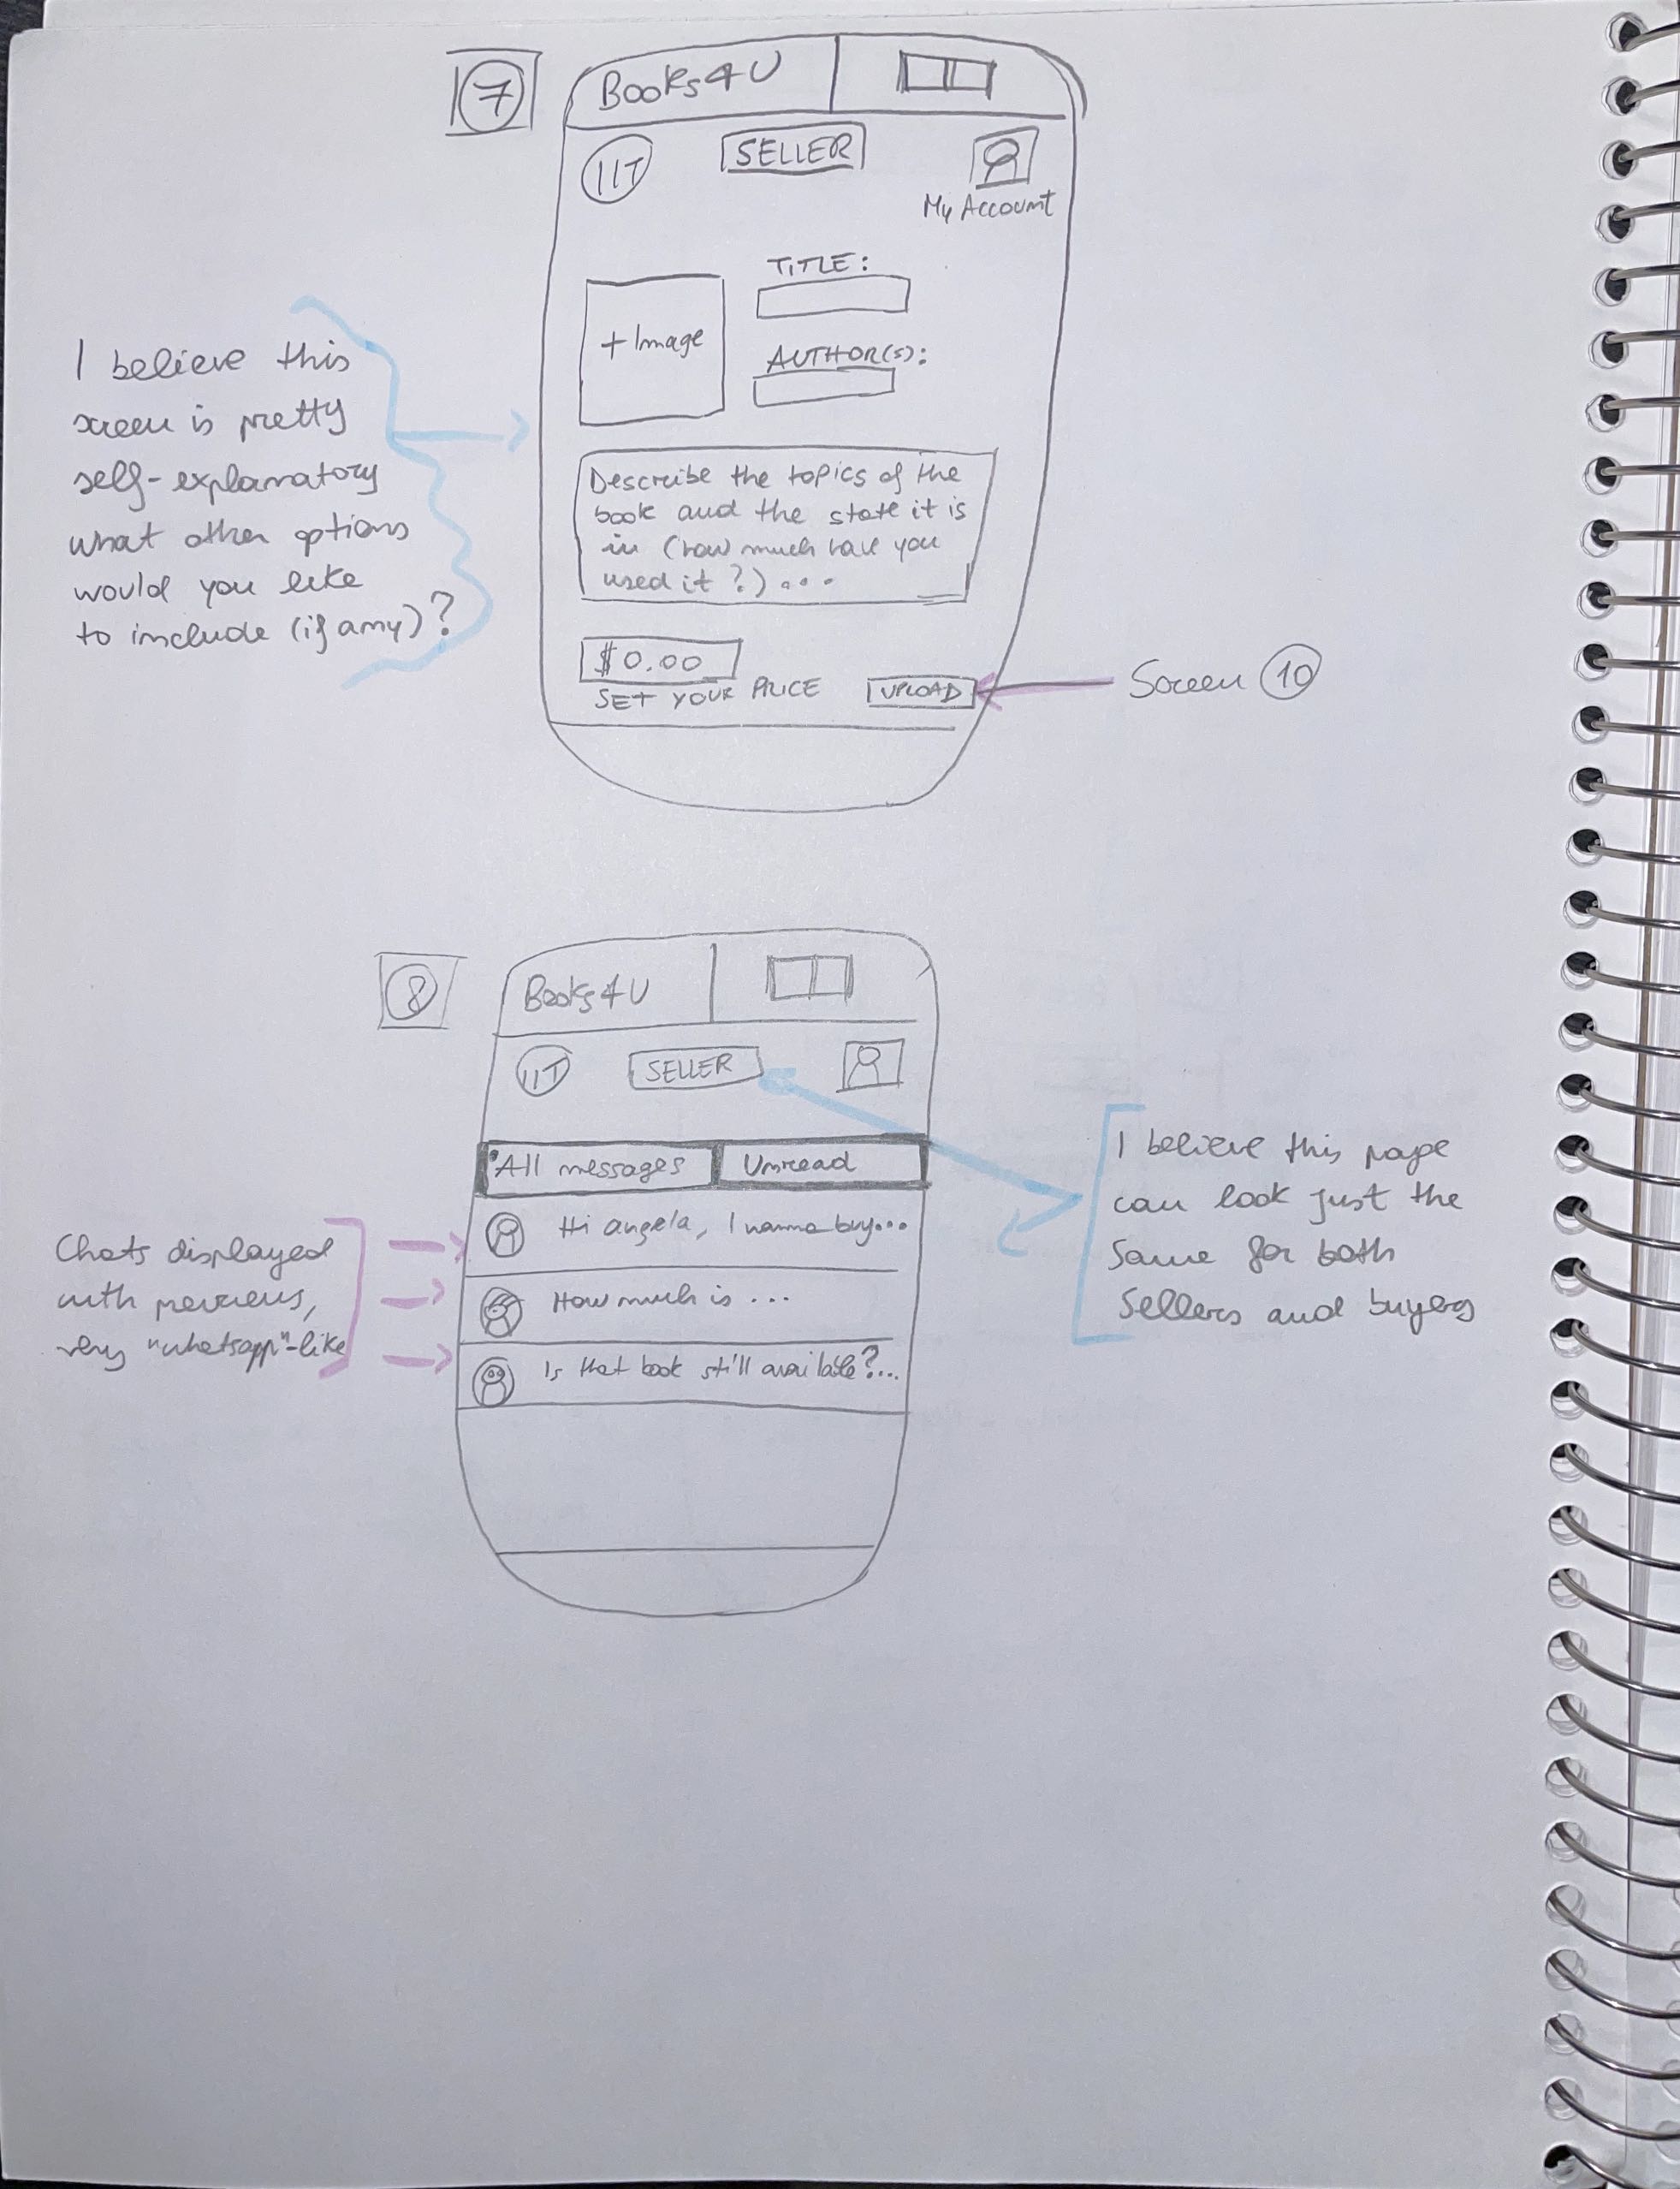 7
Books4U
IIT
SELLER
My Account
TITLE:
+ Image
AUTHOR(S):
Describe the topics of the
book and the state it is
in (how much have you
used it?)...
$0.00
SET YOUR PRICE
UPLOAD
Screen 10
I believe this
screen is pretty
self-explanatory
what other options
would you like
to include (if any)?
8
Books4U
IIT
SELLER
All messages
Unread
Hi angela, I wanna buy...
How much is ...
Is that book still available?...
Chats displayed
with previews,
very "whatsapp"-like
I believe this page
can look just the
same for both
sellers and buyers